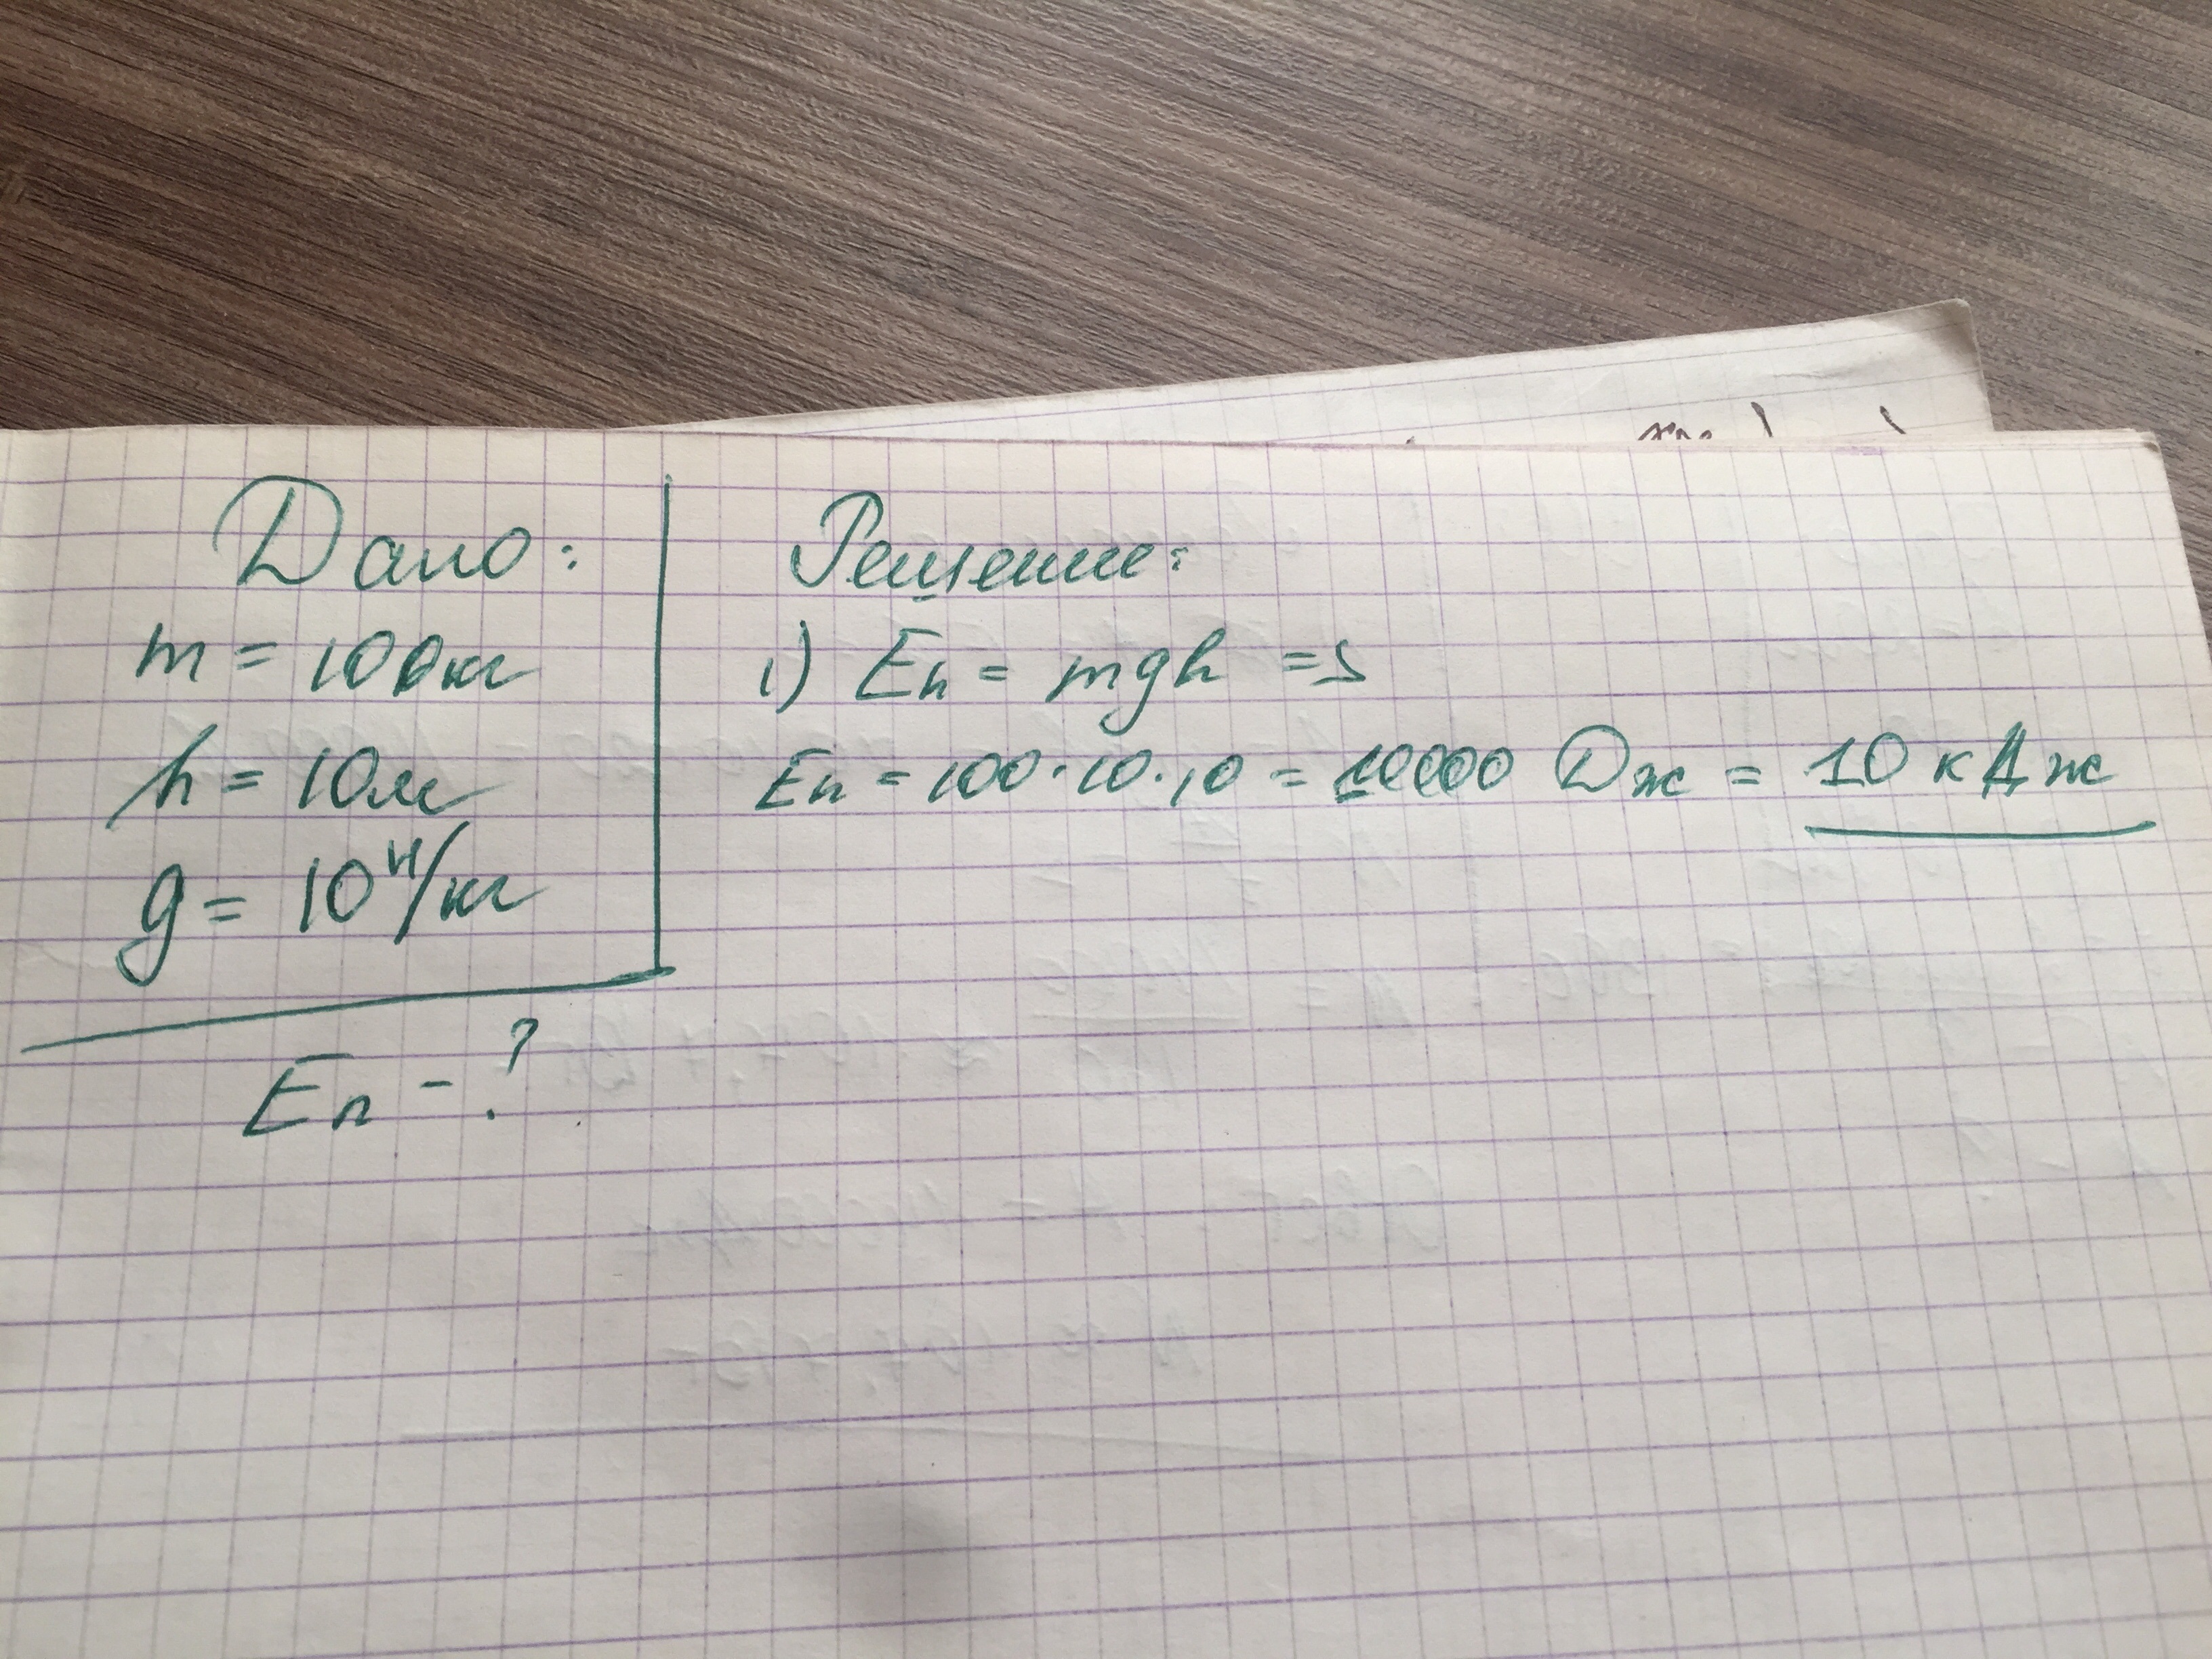 Дано:
m = 100кг
h = 10м
g = 10 Н/кг
Eп - ?
Решение:
1) Eп = mgh =>
Eп = 100·10·10 = 10000 Дж = 10 кДж